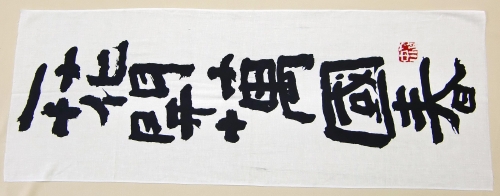 一花開萬國春